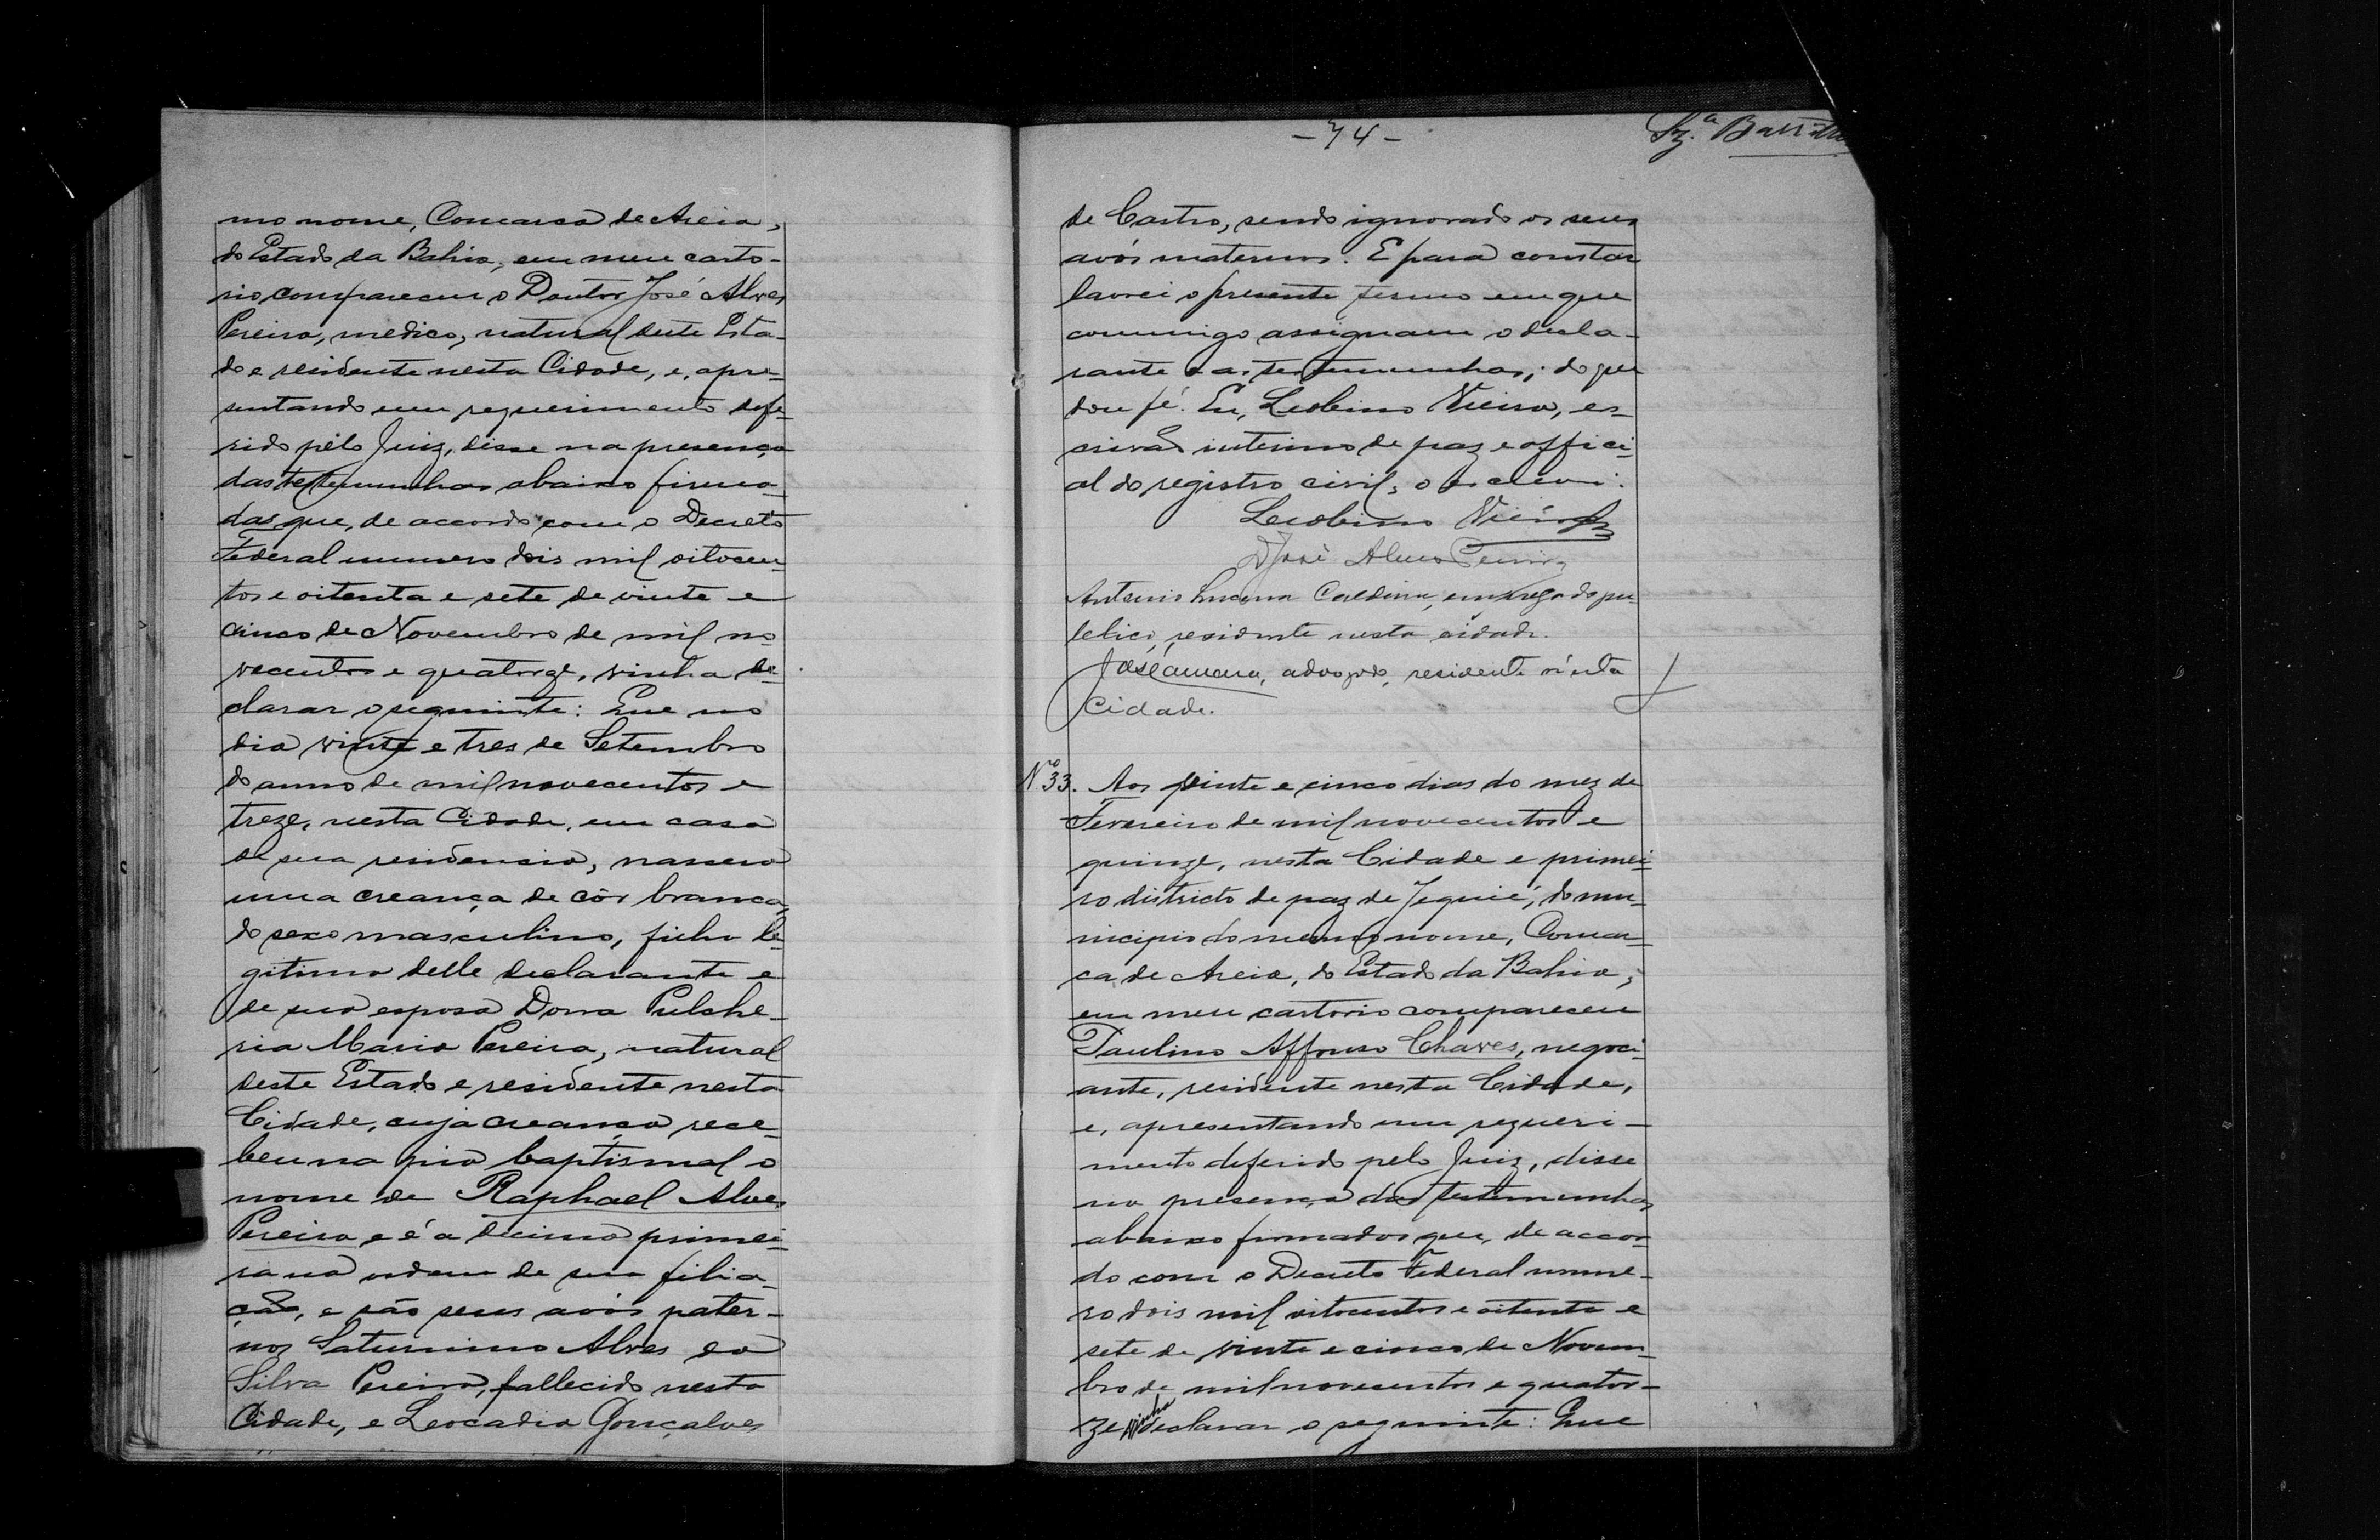 mo nome, Comarca de Areia,
do Estado da Bahia, em meu carto-
rio compareceu o Doutor José Alves
Pereira, medico, natural deste Esta-
do e residente nesta Cidade, e, apre-
sentando um requerimento defe-
rido pelo Juiz, disse na presença
das testemunhas abaixo firma-
das que, de accordo com o Decreto
Federal numero dois mil oitocen-
tos e oitenta e sete de vinte e
cinco de Novembro de mil no-
vecentos e quatorze, vinha de-
clarar o seguinte: Que no
dia vinte e tres de Setembro
do anno de mil novecentos e
treze, nesta Cidade, em casa
de sua residencia, nascera
uma creança de côr branca,
do sexo masculino, filho le-
gitimo delle declarante e
de sua esposa Dona Pulche-
ria Maria Pereira, natural
deste Estado e residente nesta
Cidade, cuja creança rece-
beu na pia baptismal o
nome de Raphael Alves
Pereira e é a decima primei-
ra na ordem de sua filia-
ção, e são seus avós pater-
nos Saturnino Alves da
Silva Pereira, fallecido nesta
Cidade, e Leocadia Gonçalves
- 74 -
de Castro, sendo ignorado os seus
avós maternos. E para constar
lavrei o presente termo em que
commigo assignam o decla-
rante e as testemunhas; do que
dou fé. Eu, Leobino Vieira, es-
crivão interino de paz e offici-
al do registro civil, o escrevi.
Leobino Vieira
Dr José Alves Pereira
Antonio Lucena Caldeira, empregado pu-
blico, residente nesta cidade.
José, advogado, residente n'esta
Cidade.
Nº 33. Aos vinte e cinco dias do mez de
Fevereiro de mil novecentos e
quinze, nesta Cidade e primei-
ro districto de paz de Jequié, do mu-
nicipio do mesmo nome, Comar-
ca de Areia, do Estado da Bahia,
em meu cartorio compareceu
Paulino Affonso Chaves, negoci-
ante, residente nesta Cidade,
e, apresentando um requeri-
mento deferido pelo Juiz, disse
na presença das testemunhas
abaixo firmados que, de accor-
do com o Decreto Federal nume-
ro dois mil oitocentos e oitenta e
sete de vinte e cinco de Novem-
bro de mil novecentos e quator-
ze vinha declarar o seguinte: Que